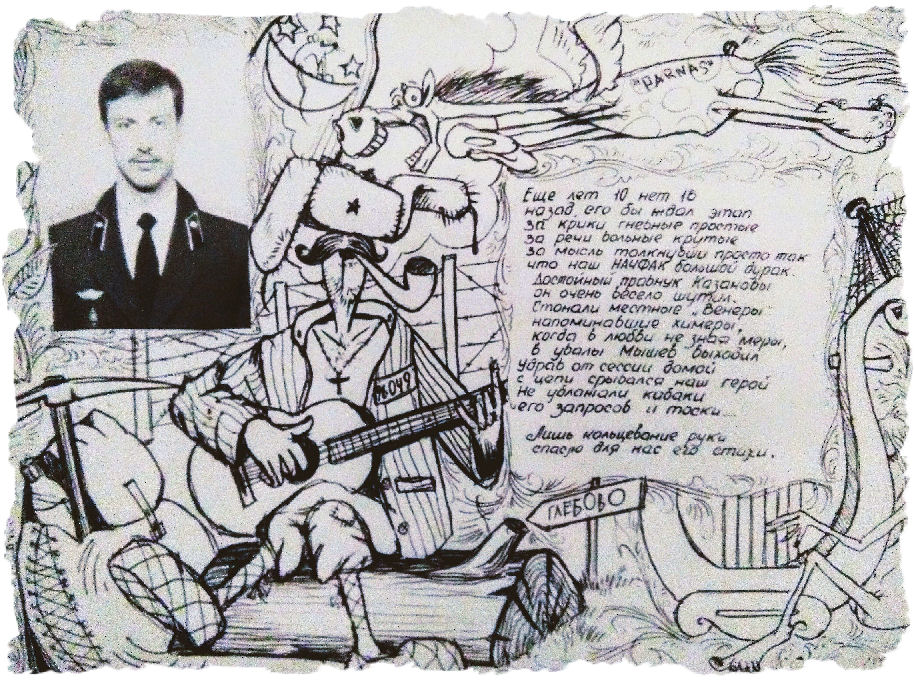 "PARNAS"
Еще лет 10 нет 15
назад его бы ждал этап
за крики гневные простые
за речи вольные крутые
за мысль толкнувши просто так
что наш НАУФАК большой дурак.
Достойный правнук Казановы
он очень весело шутил.
Стонали местные „Венеры
напоминавшие химеры,
когда в любви не зная меры,
в увалы Мышев выходил
Удрав от сессии домой
с цепи срывался наш герой
Не ублажали кабаки
его запросов и тоски...
Лишь кольцевание руки
спасло для нас его стихи.
ГЛЕБОВО